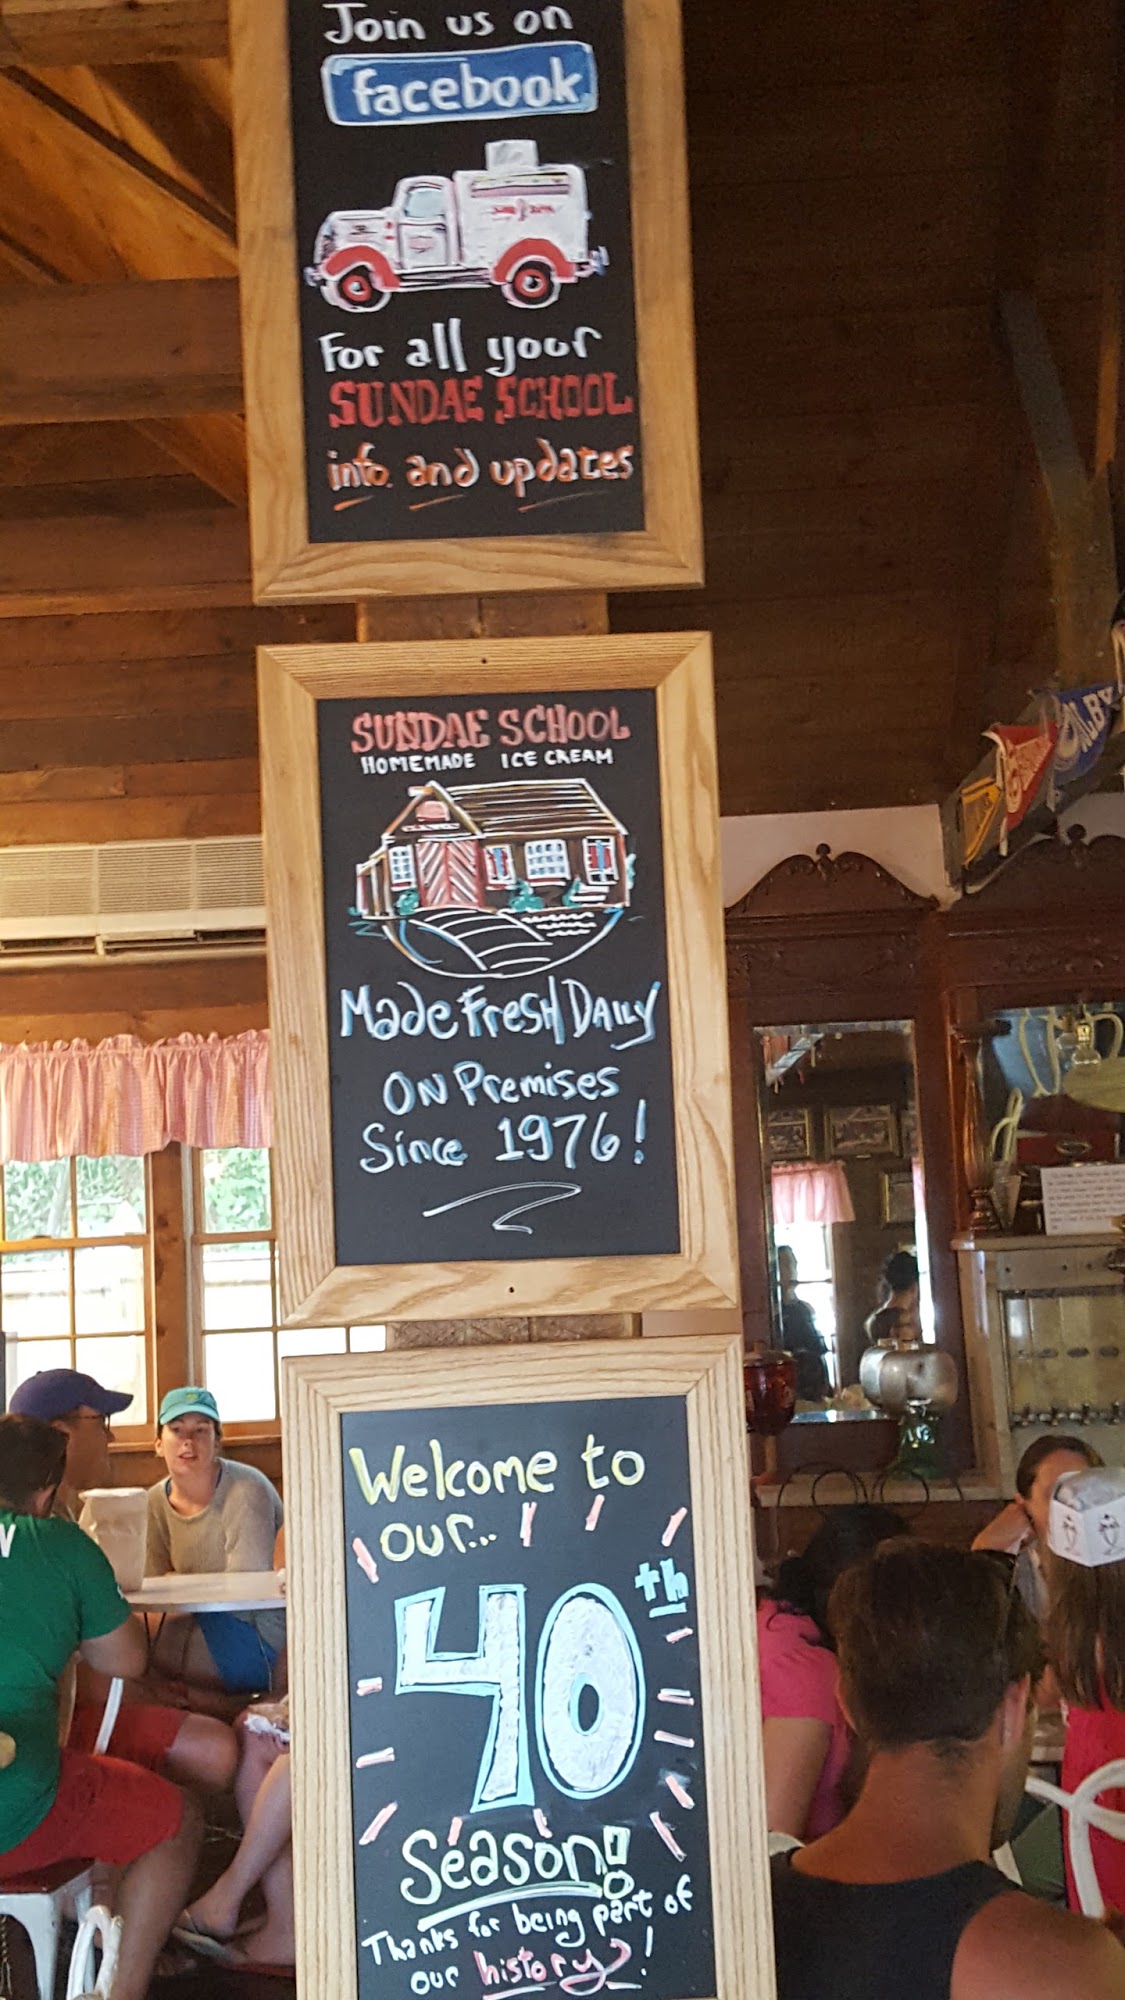 Join us on
facebook
For all your
SUNDAE SCHOOL
info. and updates
SUNDAE SCHOOL
HOMEMADE ICE CREAM
Made Fresh Daily
On Premises
Since 1976!
Welcome to
our...
40th
Season!
Thanks for being part of
our history!